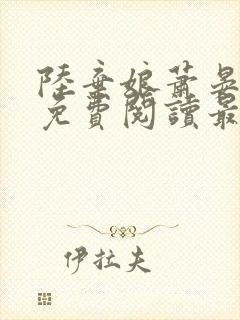 陸棄娘蕭晏
免費閱讀最
伊拉夫